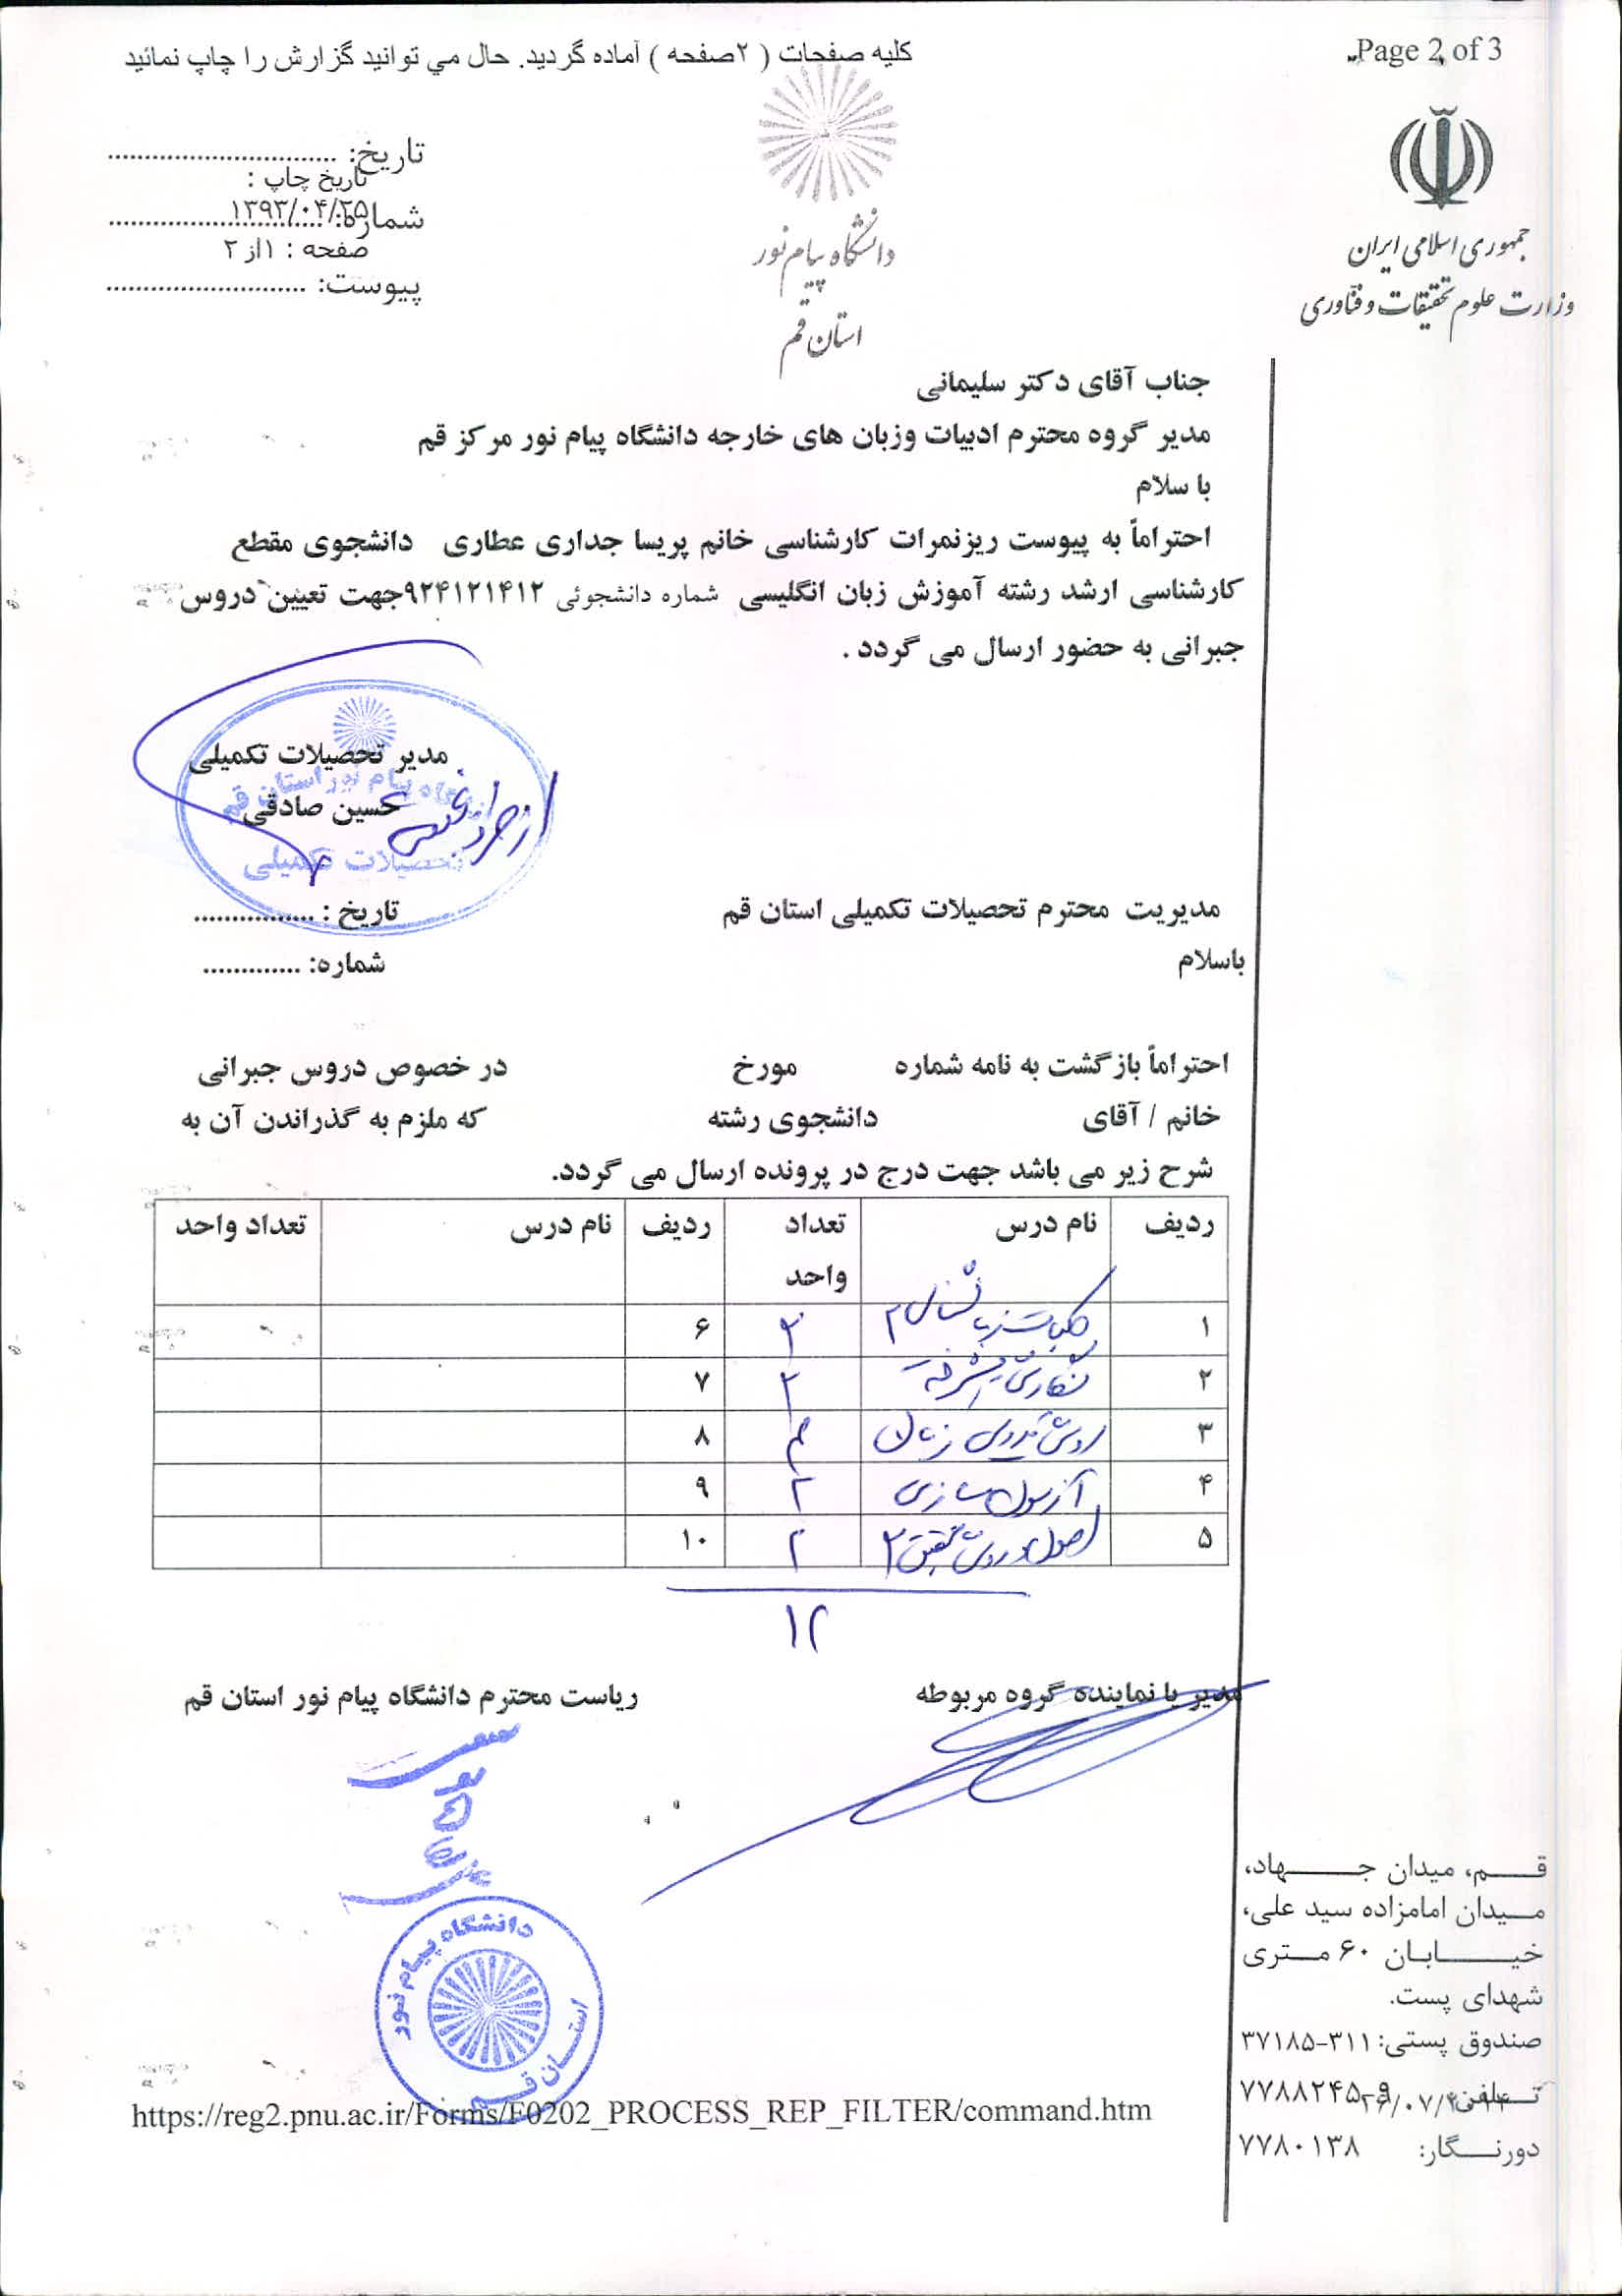 کلیه صفحات ( ۲صفحه ) آماده گردید. حال می توانید گزارش را چاپ نمائید
Page 2 of 3
جمهوری اسلامی ایران
وزارت علوم تحقیقات و فنّاوری
دانشگاه پیام نور
استان قم
تاریخ: ..............................
تاریخ چاپ :
شماره: ..............................
۱۳۹۳/۰۴/۲۵
صفحه : ۱از ۲
پیوست: ..........................
جناب آقای دکتر سلیمانی
مدیر گروه محترم ادبیات وزبان های خارجه دانشگاه پیام نور مرکز قم
با سلام
احتراماً به پیوست ریزنمرات کارشناسی خانم پریسا جداری عطاری دانشجوی مقطع
کارشناسی ارشد رشته آموزش زبان انگلیسی شماره دانشجوئی ۹۲۴۱۲۱۴۱۲جهت تعیین دروس
جبرانی به حضور ارسال می گردد .
مدیر تحصیلات تکمیلی
حسین صادقی
دانشگاه پیام نور استان قم
تحصیلات تکمیلی
مدیریت محترم تحصیلات تکمیلی استان قم
تاریخ : ................
باسلام
شماره: .............
احتراماً بازگشت به نامه شماره مورخ در خصوص دروس جبرانی
خانم / آقای دانشجوی رشته که ملزم به گذراندن آن به
شرح زیر می باشد جهت درج در پرونده ارسال می گردد.
ردیف نام درس تعداد واحد ردیف نام درس تعداد واحد
۱ کلیات زبانشناسی ۲ ۲ ۶
۲ نگارش پیشرفته ۲ ۷
۳ روش تدریس زبان ۴ ۸
۴ آزمون سازی ۲ ۹
۵ اصول و روش تحقیق ۲ ۲ ۱۰
۱۲
مدیر یا نماینده گروه مربوطه
ریاست محترم دانشگاه پیام نور استان قم
دانشگاه پیام نور
استان قم
قم، میدان جهاد،
میدان امامزاده سید علی،
خیابان ۶۰ متری
شهدای پست.
صندوق پستی: ۳۷۱۸۵-۳۱۱
تلفن:
دورنگار: ۷۷۸۰۱۳۸
https://reg2.pnu.ac.ir/Forms/F0202_PROCESS_REP_FILTER/command.htm